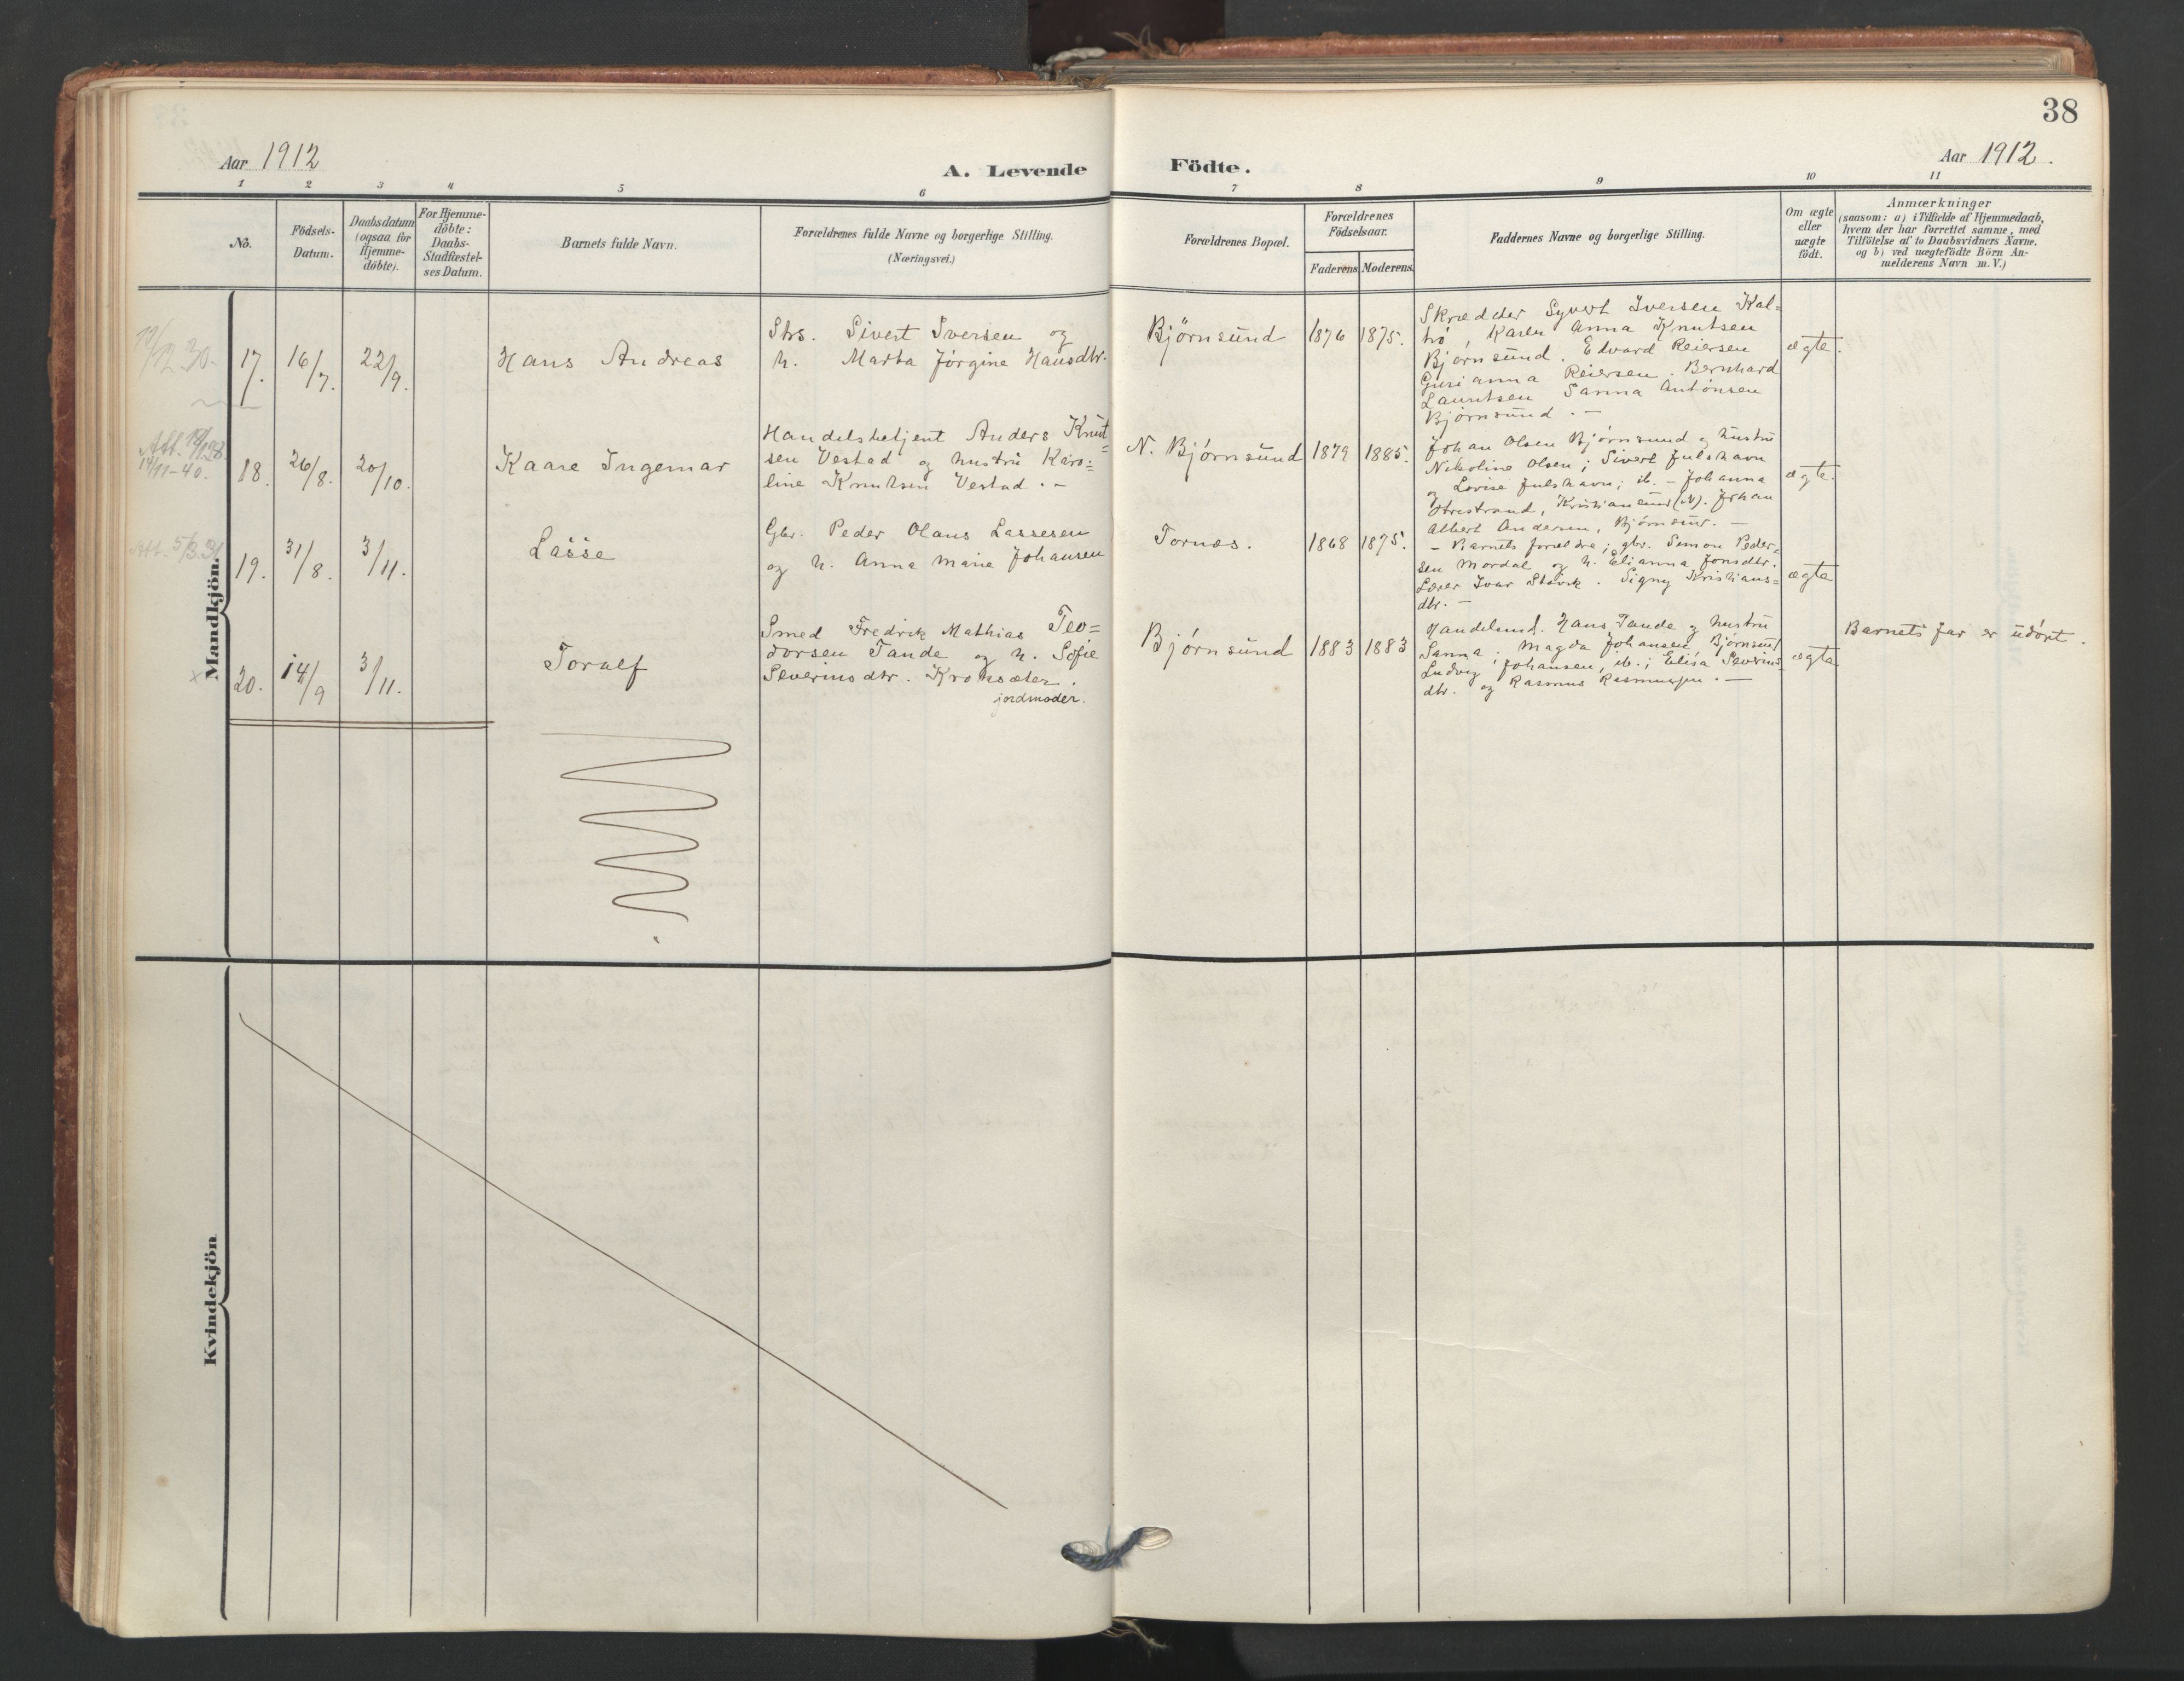 38
Aar 1912
A. Levende Födte.
Aar 1912.
1 2 3 4 5 6 7 8 9 10 11
No.
Födsels-
Datum.
Daabsdatum
(ogsaa for
Hjemme-
döbte).
For Hjemme-
döbte:
Daabs-
Stadfæstel-
ses Datum.
Barnets fulde Navn.
Forældrenes fulde Navne og borgerlige Stilling.
(Næringsvei.)
Forældrenes Bopæl.
Forældrenes
Födselsaar.
Faderens
Moderens.
Faddernes Navne og borgerlige Stilling.
Om ægte
eller
uægte
födt.
Anmærkninger
(saasom: a) i Tilfælde af Hjemmedaab,
hvem der har forrettet samme, med
Tilföielse af to Daabsvidners Navne.
og b) ved uægtefödte Börn An-
melderens Navn m. V.)
Mandkjön.
12.30.
17.
16/7.
22/9.
Hans Andreas
Strs. Sivert Iversen og
h. Marta Jørgine Hansdtr.
Bjørnsund
1876
1875.
Skrædder Syvert Iversen Kal=
trø, Karen Anna Knutsen
Bjørnsund. Edvard Reiersen
Gurianna Reiersen. Bernhard
Lauritsen Sanna Antonsen
Bjørnsund. –
ægte.
Att.
14/11-40.
18.
26/8.
20/10.
Kaare Ingemar
Handelsbetjent Anders Knut=
sen Vestad og hustru Karo=
line Knutsen Vestad. –
N. Bjørnsund
1879
1885.
Johan Olsen Bjørnsund og hustru
Nikoline Olsen; Sivert Julshavn
og Lovise Julshavn; ib. – Johanna
Kristiansund (N). Johan
Albert Andersen, Bjørnsund. –
ægte.
Att. 5/3.31
19.
31/8.
3/11.
Lasse
Gbr. Peder Olaus Lassesen
og h. Anna Marie Johansen
Tornes.
1868
1875.
– Barnets forældre; gbr. Simon Peder=
sen Mordal og h. Elianna Jonsdtr.
Lærer Ivar Stavik. Signy Kristians=
dtr. –
ægte
20.
14/9
3/11.
Toralf
Smed Fredrik Mathias Teo=
dorsen Tande og h. Sofie
Severinsdtr. Kroksæter.
jordmoder.
Bjørnsund
1883
1883
Handelsmd. Hans Tande og hustru
Sanna; Magda Johansen Bjørnsund
Ludvig Johansen, ib.; Elisa Severins=
dtr. og Rasmus Rasmussen. –
ægte
Barnets far er udørt.
Kvindekjön